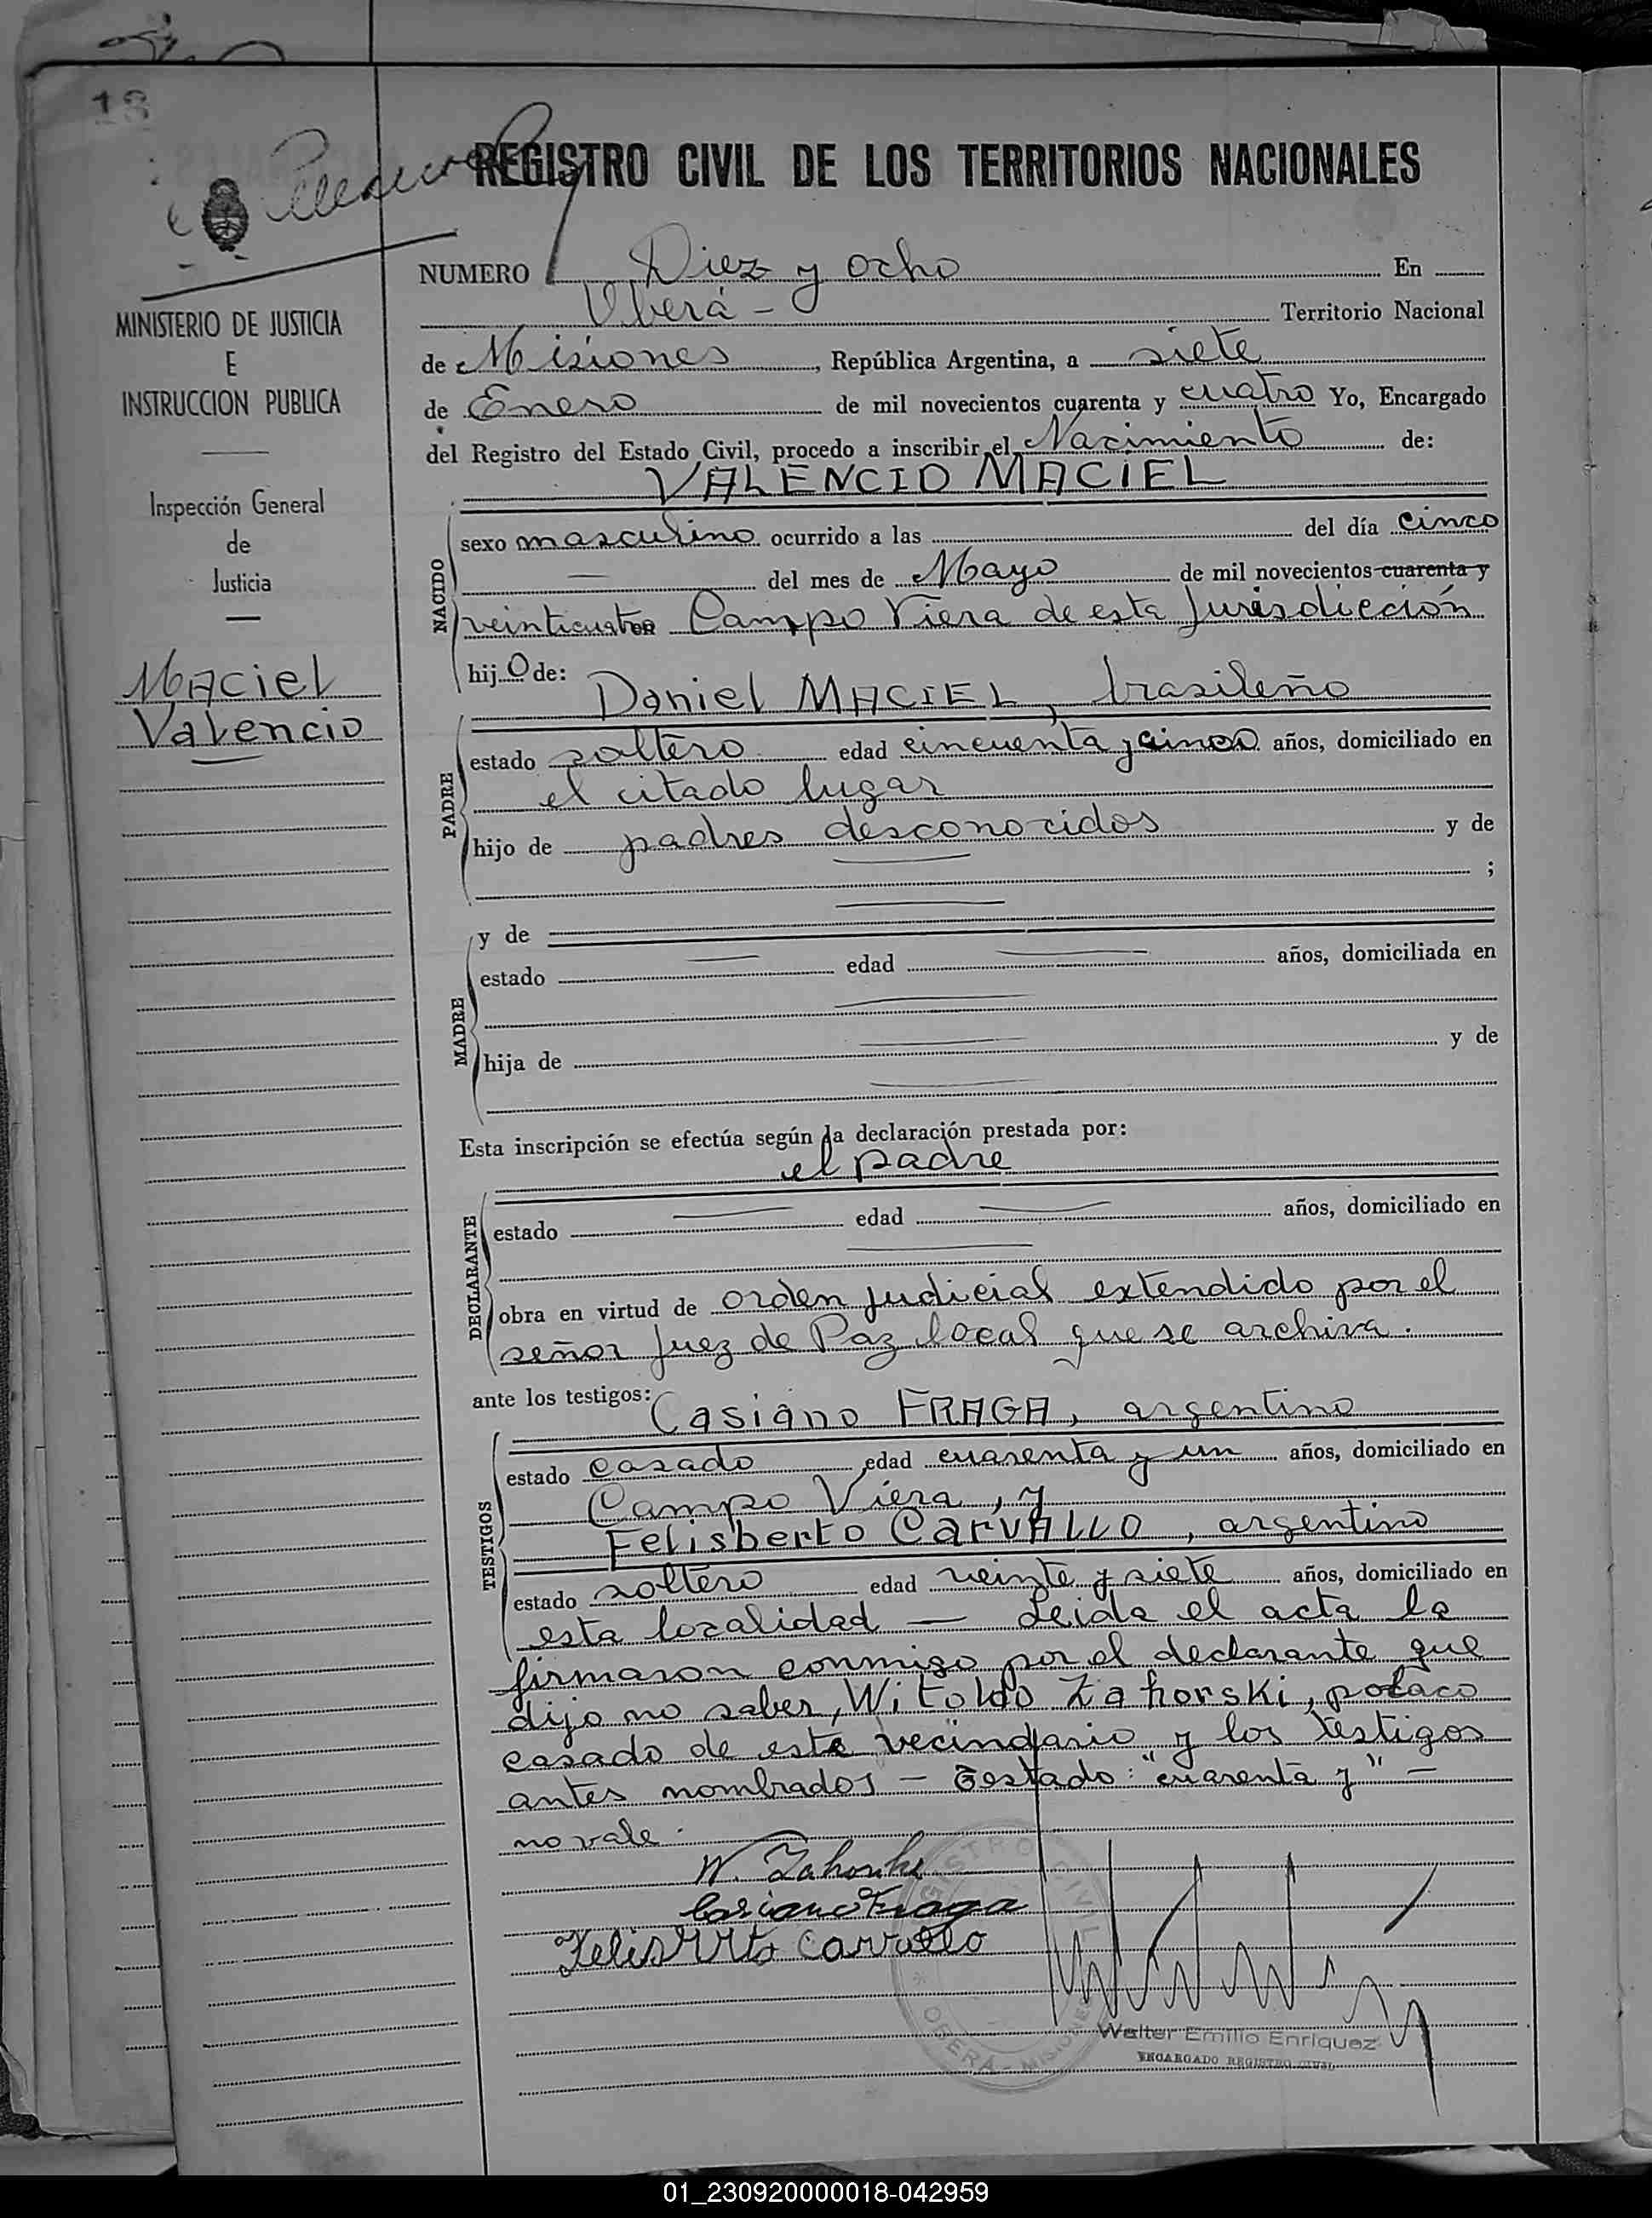 18
REGISTRO CIVIL DE LOS TERRITORIOS NACIONALES
NUMERO Diez y ocho En
Oberá - Territorio Nacional
de Misiones, República Argentina, a siete
de Enero de mil novecientos cuarenta y cuatro Yo, Encargado
del Registro del Estado Civil, procedo a inscribir el Nacimiento de:
VALENCIO MACIEL
MINISTERIO DE JUSTICIA
E
INSTRUCCION PUBLICA
Inspección General
de
Justicia
Maciel
Valencio
NACIDO
sexo masculino ocurrido a las del día cinco
— del mes de Mayo de mil novecientos cuarenta y
veinticuatro Campo Viera de esta Jurisdicción
hijo de:
Daniel MACIEL, brasileño
PADRE
estado soltero edad cincuenta y cinco años, domiciliado en
el citado lugar
hijo de padres desconocidos y de
;
MADRE
y de
estado — edad — años, domiciliada en
hija de — y de
Esta inscripción se efectúa según la declaración prestada por:
el padre
DECLARANTE
estado — edad — años, domiciliado en
obra en virtud de orden judicial extendido por el
señor Juez de Paz local que se archiva.
ante los testigos:
Casiano FRAGA, argentino
TESTIGOS
estado casado edad cuarenta y un años, domiciliado en
Campo Viera, y
Felisberto CARVALLO, argentino
estado soltero edad veinte y siete años, domiciliado en
esta localidad — Leida el acta la
firmaron conmigo por el declarante que
dijo no saber, Witoldo Zahorski, polaco
casado de este vecindario y los testigos
antes nombrados — Testado: "cuarenta y" —
no vale.
W. Zahorski
Casiano Fraga
Felisberto Carvallo
REGISTRO CIVIL
* OBERÁ - MISIONES
Walter Emilio Enriquez
ENCARGADO REGISTRO CIVIL
01_230920000018-042959